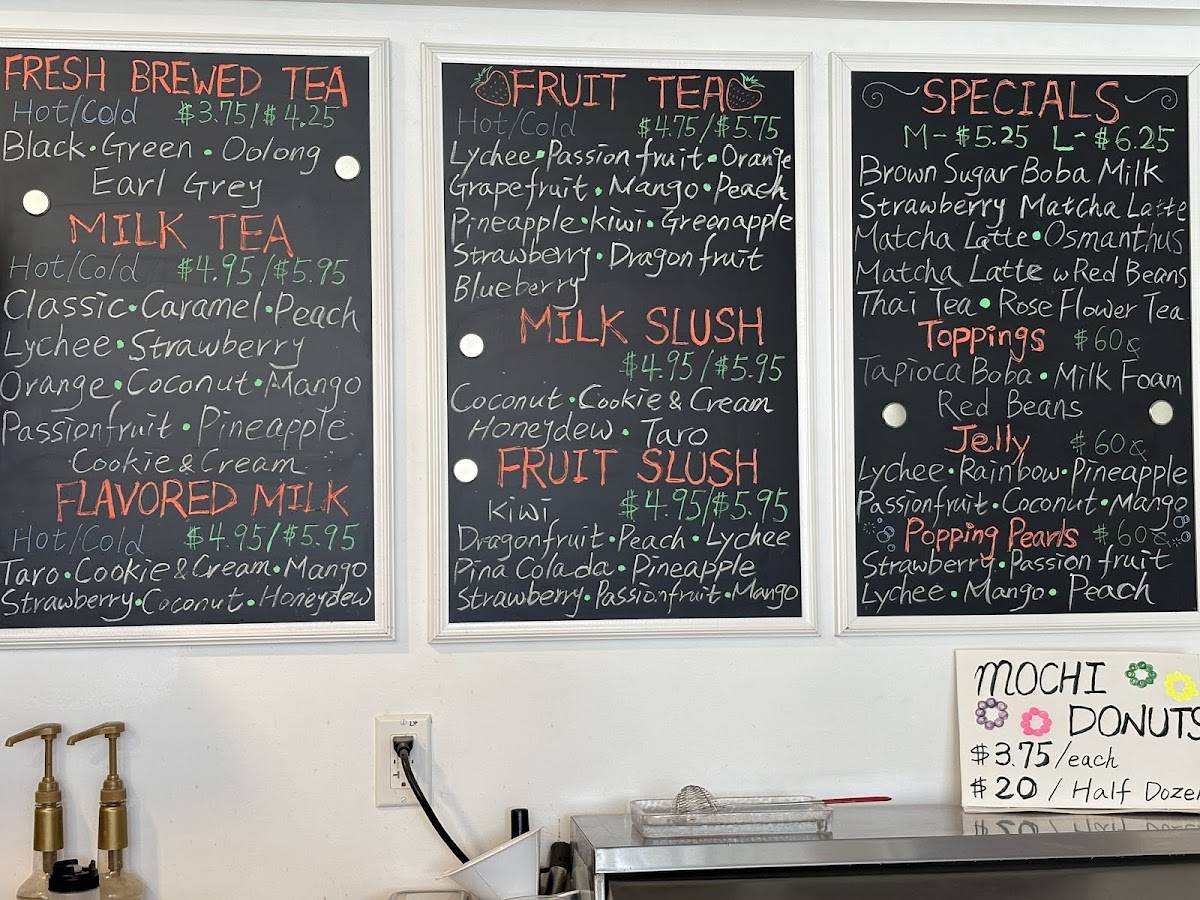 FRESH BREWED TEA
Hot/Cold $3.75/$4.25
Black • Green • Oolong
Earl Grey
MILK TEA
Hot/Cold $4.95/$5.95
Classic • Caramel • Peach
Lychee • Strawberry
Orange • Coconut • Mango
Passionfruit • Pineapple
Cookie & Cream
FLAVORED MILK
Hot/Cold $4.95/$5.95
Taro • Cookie & Cream • Mango
Strawberry • Coconut • Honeydew
FRUIT TEA
Hot/Cold $4.75/$5.75
Lychee • Passion fruit • Orange
Grapefruit • Mango • Peach
Pineapple • kiwi • Greenapple
Strawberry • Dragon fruit
Blueberry
MILK SLUSH
$4.95/$5.95
Coconut • Cookie & Cream
Honeydew • Taro
FRUIT SLUSH
Kiwi $4.95/$5.95
Dragonfruit • Peach • Lychee
Pina Colada • Pineapple
Strawberry • Passionfruit • Mango
SPECIALS
M-$5.25 L-$6.25
Brown Sugar Boba Milk
Strawberry Matcha Latte
Matcha Latte • Osmanthus
Matcha Latte w Red Beans
Thai Tea • Rose Flower Tea
Toppings $60¢
Tapioca Boba • Milk Foam
Red Beans
Jelly $60¢
Lychee • Rainbow • Pineapple
Passionfruit • Coconut • Mango
Popping Pearls $60¢
Strawberry • Passion fruit
Lychee • Mango • Peach
MOCHI
DONUTS
$3.75/each
$20 / Half Dozen